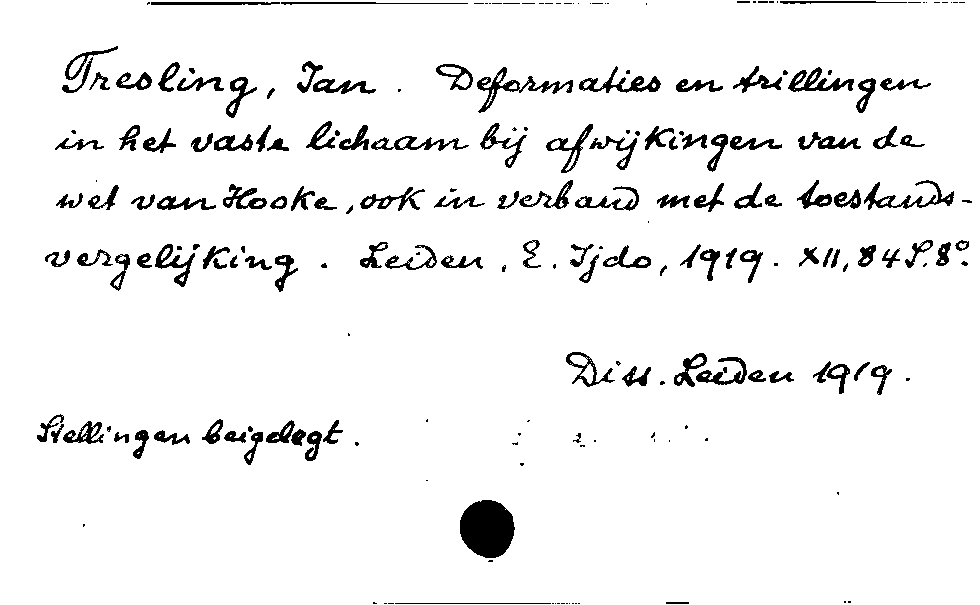 Tresling, Jan. Deformaties en trillingen
in het vaste lichaam bij afwijkingen van de
wet van Hooke, ook in verband met de toestands-
vergelijking. Leiden, E. Ijdo, 1919. XII, 84 S. 8°.
Diss. Leiden 1919.
Stellingen beigelegt.